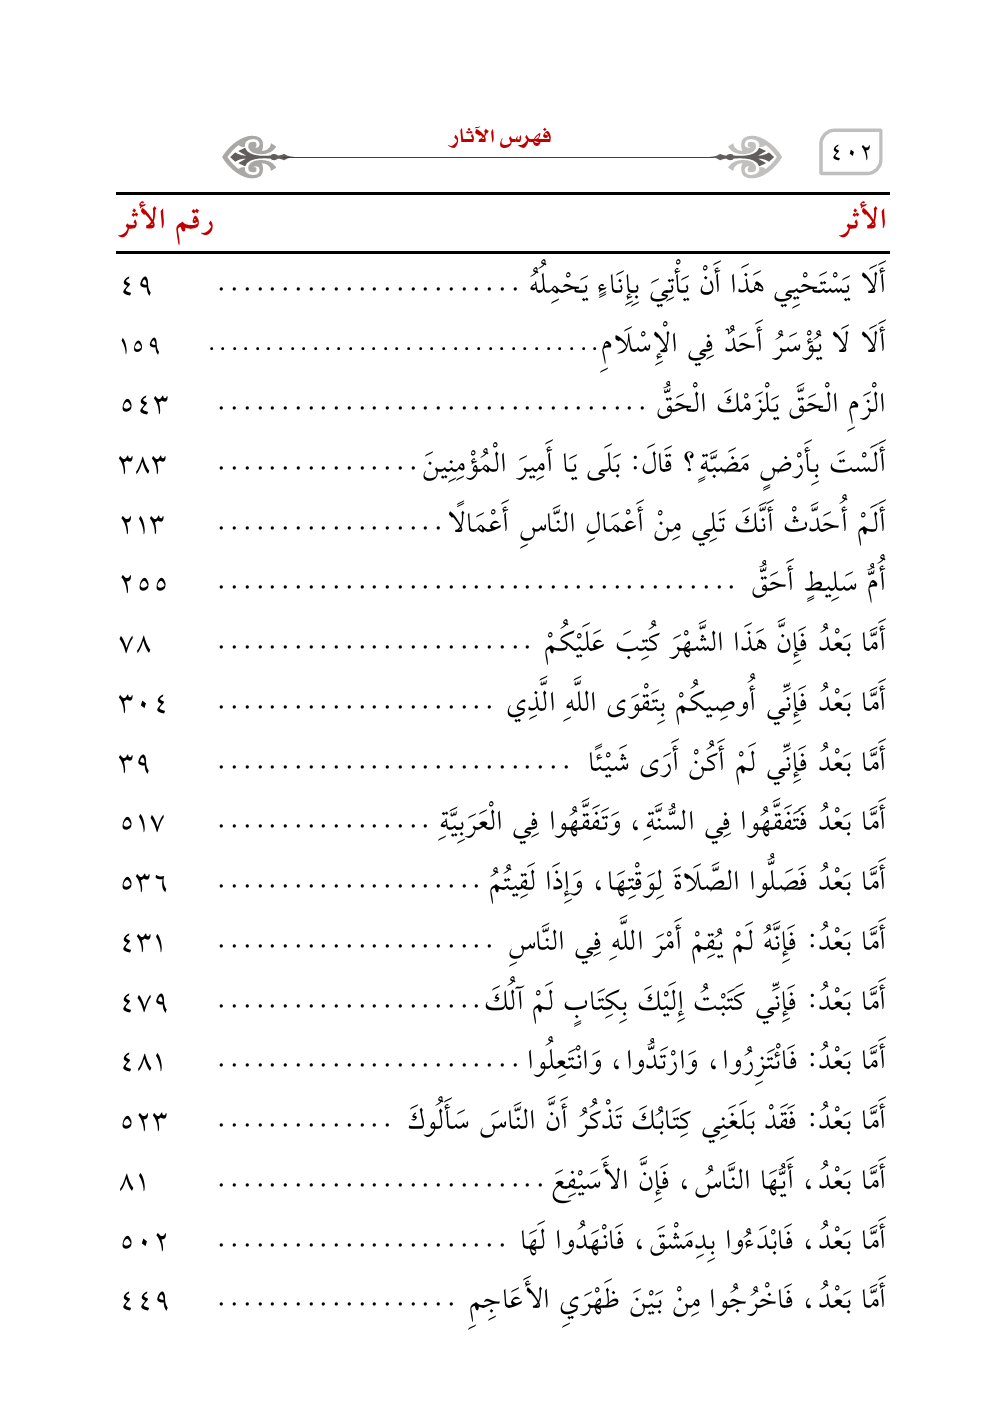 ٤٠٢
فهرس الآثار
الأثر رقم الأثر
أَلَا يَسْتَحْيِي هَذَا أَنْ يَأْتِيَ بِإِنَاءٍ يَحْمِلُهُ ........................ ٤٩
أَلَا لَا يُؤْسَرُ أَحَدٌ فِي الْإِسْلَامِ................................. ١٥٩
الْزَمِ الْحَقَّ يَلْزَمْكَ الْحَقُّ .................................. ٥٤٣
أَلَسْتَ بِأَرْضٍ مَضَبَّةٍ؟ قَالَ: بَلَى يَا أَمِيرَ الْمُؤْمِنِينَ................ ٣٨٣
أَلَمْ أُحَدَّثْ أَنَّكَ تَلِي مِنْ أَعْمَالِ النَّاسِ أَعْمَالًا .................. ٢١٣
أُمُّ سَلِيطٍ أَحَقُّ ......................................... ٢٥٥
أَمَّا بَعْدُ فَإِنَّ هَذَا الشَّهْرَ كُتِبَ عَلَيْكُمْ ......................... ٧٨
أَمَّا بَعْدُ فَإِنِّي أُوصِيكُمْ بِتَقْوَى اللَّهِ الَّذِي ...................... ٣٠٤
أَمَّا بَعْدُ فَإِنِّي لَمْ أَكُنْ أَرَى شَيْئًا ............................ ٣٩
أَمَّا بَعْدُ فَتَفَقَّهُوا فِي السُّنَّةِ، وَتَفَقَّهُوا فِي الْعَرَبِيَّةِ ................. ٥١٧
أَمَّا بَعْدُ فَصَلُّوا الصَّلَاةَ لِوَقْتِهَا، وَإِذَا لَقِيتُمُ ..................... ٥٣٦
أَمَّا بَعْدُ: فَإِنَّهُ لَمْ يُقِمْ أَمْرَ اللَّهِ فِي النَّاسِ ...................... ٤٣١
أَمَّا بَعْدُ: فَإِنِّي كَتَبْتُ إِلَيْكَ بِكِتَابٍ لَمْ آلُكَ..................... ٤٧٩
أَمَّا بَعْدُ: فَائْتَزِرُوا، وَارْتَدُّوا، وَانْتَعِلُوا ........................ ٤٨١
أَمَّا بَعْدُ: فَقَدْ بَلَغَنِي كِتَابُكَ تَذْكُرُ أَنَّ النَّاسَ سَأَلُوكَ .............. ٥٢٣
أَمَّا بَعْدُ، أَيُّهَا النَّاسُ، فَإِنَّ الأُسَيْفِعَ .......................... ٨١
أَمَّا بَعْدُ، فَابْدَءُوا بِدِمَشْقَ، فَانْهَدُوا لَهَا ....................... ٥٠٢
أَمَّا بَعْدُ، فَاخْرُجُوا مِنْ بَيْنَ ظَهْرَيِ الأَعَاجِمِ ................... ٤٤٩